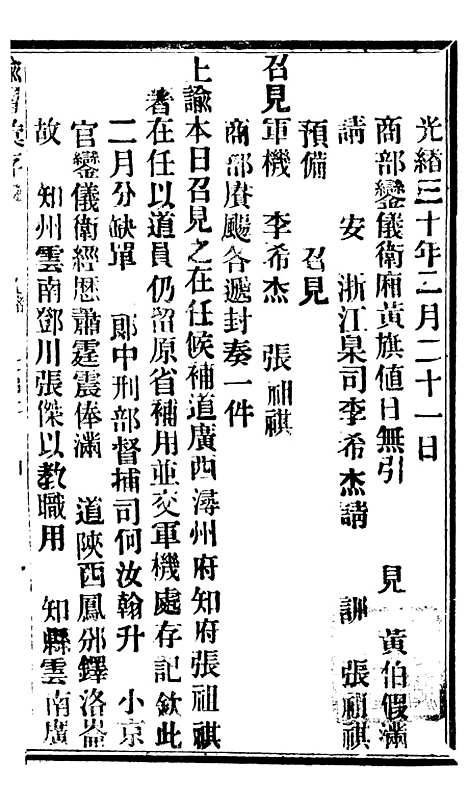 光緒三十年二月二十一日
商部鑾儀衛廂黃旗值日無引 見 黃伯假滿
請 安 浙江臬司李希杰請 訓 張祖祺
預備 召見
召見軍機 李希杰 張祖祺
商部賡颺各遞封奏一件
上諭本日召見之在任候補道廣西潯州府知府張祖祺
著在任以道員仍留原省補用並交軍機處存記欽此
二月分缺單 郎中刑部督捕司何汝翰升 小京
官鑾儀衛經歷蕭霆震俸滿 道陝西鳳邠鐸洛崙
故 知州雲南鄧川張傑以教職用 知縣雲南廣